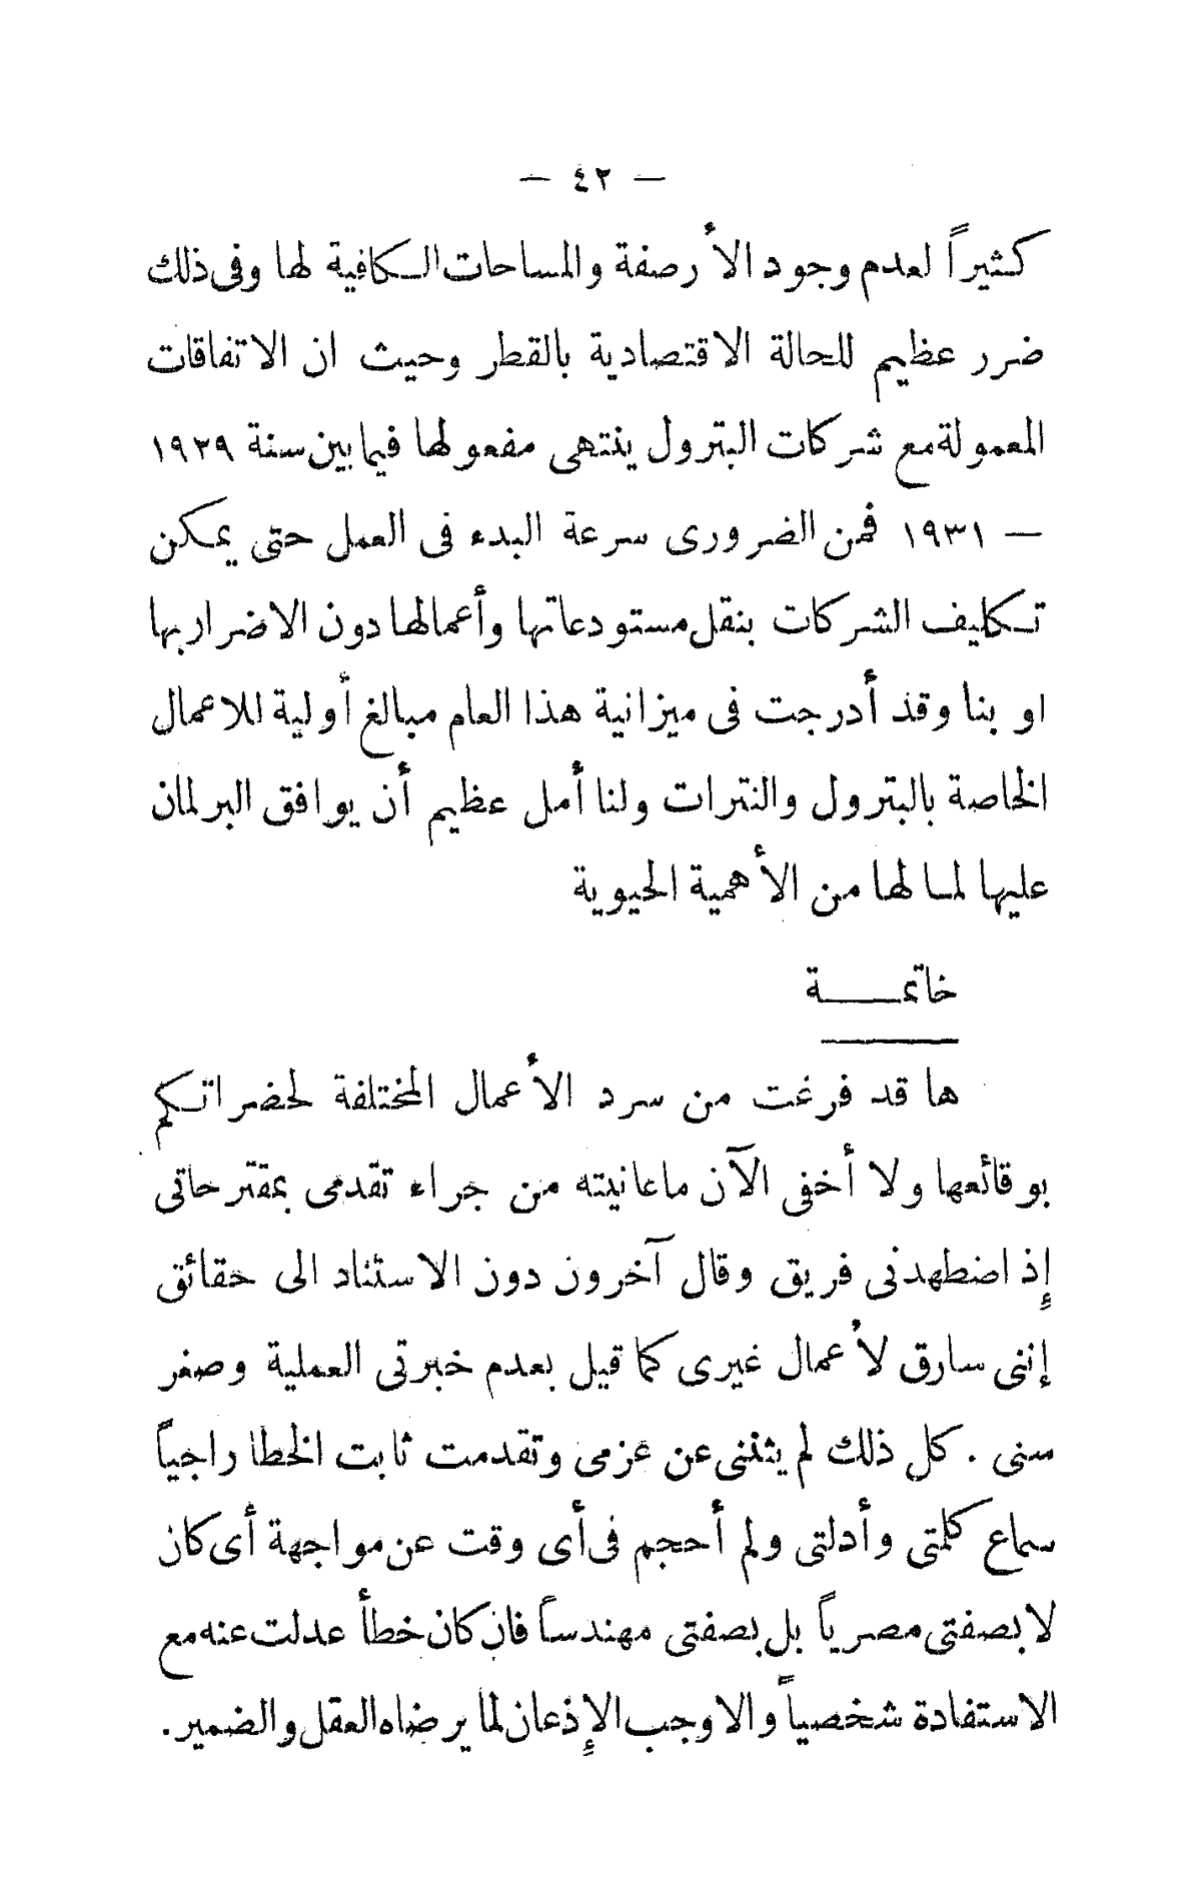 — ٤٢ —
كثيراً لعدم وجود الأرصفة والمساحات الكافية لها وفى ذلك
ضرر عظيم للحالة الاقتصادية بالقطر وحيث ان الاتفاقات
المعمولة مع شركات البترول ينتهى مفعولها فيما بين سنة ١٩٣٩
— ١٩٣١ فمن الضرورى سرعة البدء فى العمل حتى يمكن
تكليف الشركات بنقل مستودعاتها وأعمالها دون الاضرار بها
او بنا وقد أدرجت فى ميزانية هذا العام مبالغ أولية للاعمال
الخاصة بالبترول والنترات ولنا أمل عظيم أن يوافق البرلمان
عليها لما لها من الأهمية الحيوية
خاتمـــــة
ها قد فرغت من سرد الأعمال المختلفة لحضراتكم
بوقائعها ولا أخفى الآن ماعانيته من جراء تقدمى بمقترحاتى
إذ اضطهدنى فريق وقال آخرون دون الاستناد الى حقائق
إننى سارق لأعمال غيرى كما قيل بعدم خبرتى العملية وصغر
سنى . كل ذلك لم يثننى عن عزمى وتقدمت ثابت الخطا راجياً
سماع كلمتى وأدلتى ولم أحجم فى أى وقت عن مواجهة أى كان
لا بصفتى مصرياً بل بصفتى مهندساً فان كان خطأ عدلت عنه مع
الاستفادة شخصياً والا وجب الإذعان لما يرضاه العقل والضمير.